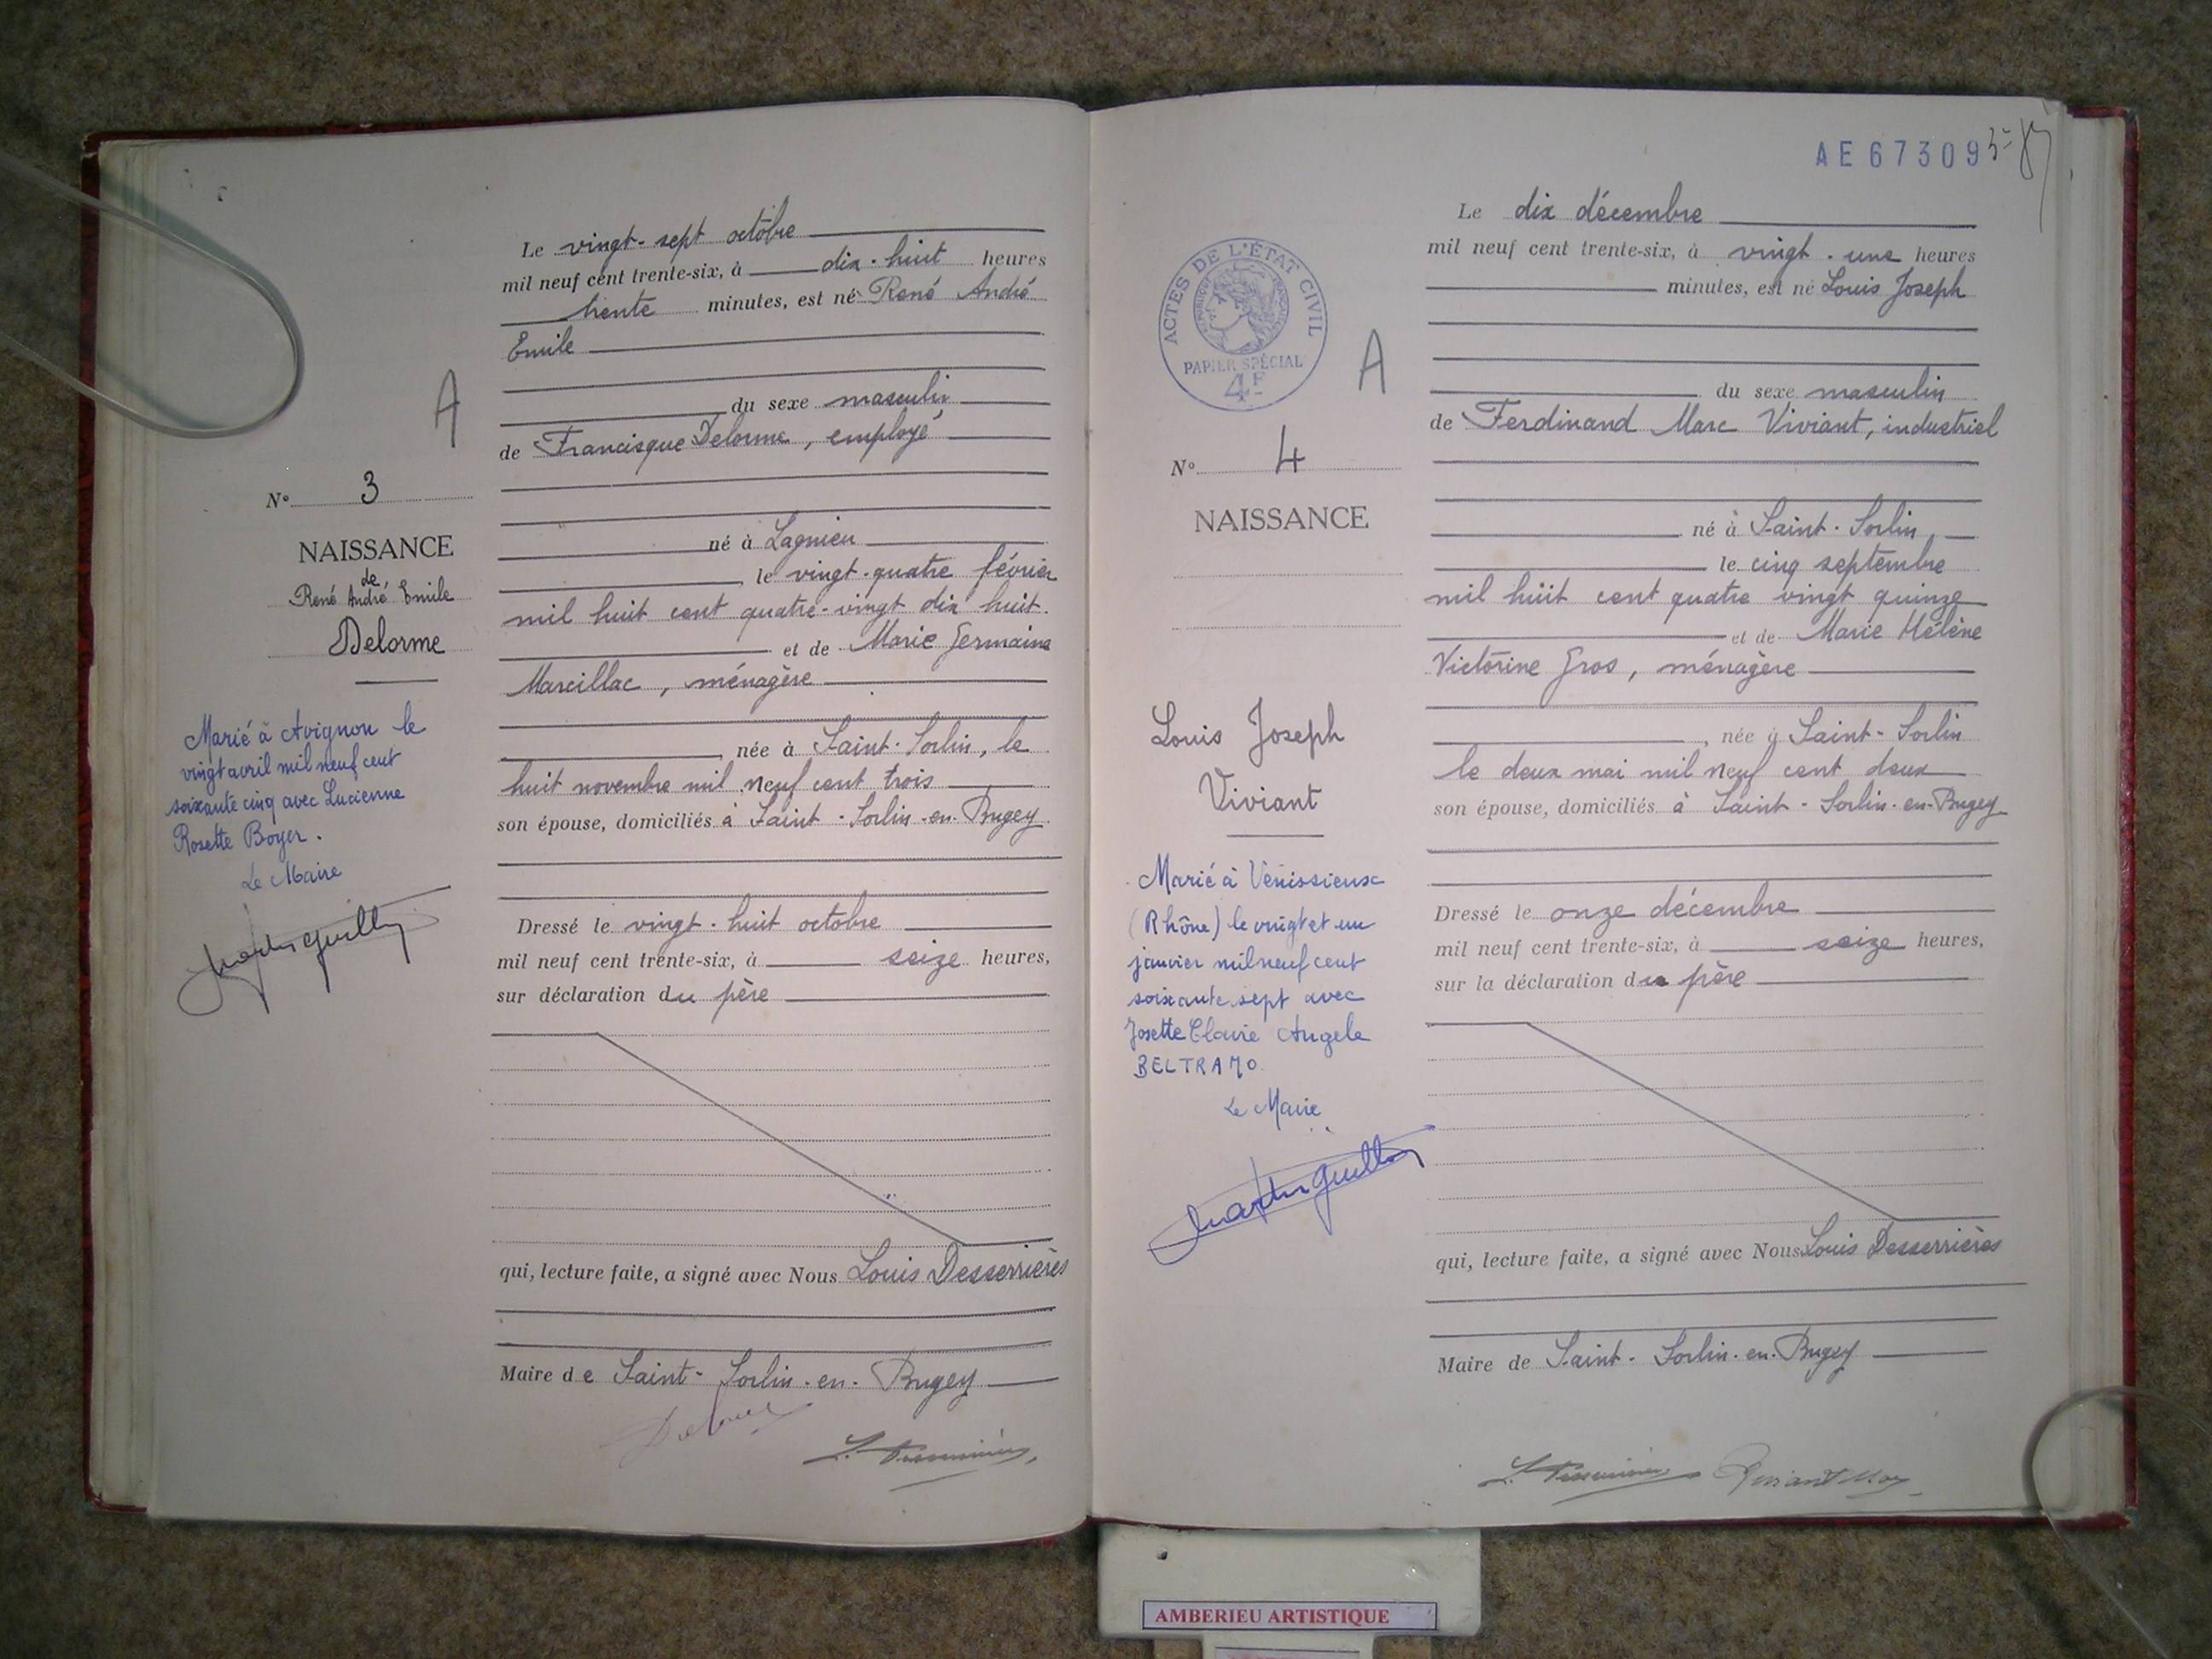 Le vingt-sept octobre
mil neuf cent trente-six, à dix-huit heures
trente minutes, est né René André
Emile
du sexe masculin
de Francisque Delorme, employé
né à Lagnieu
le vingt-quatre février
mil huit cent quatre-vingt dix huit.
et de Marie Germaine
Marcillac, ménagère
née à Saint-Sorlin, le
huit novembre mil neuf cent trois
son épouse, domiciliés à Saint-Sorlin-en-Bugey
Dressé le vingt-huit octobre
mil neuf cent trente-six, à seize heures,
sur déclaration du père
qui, lecture faite, a signé avec Nous Louis Desserrières
Maire de Saint-Sorlin-en-Bugey
A
N° 3
NAISSANCE
de
René André, Emile
Delorme
Marié à Avignon le
vingt avril mil neuf cent
soixante cinq avec Lucienne
Rosette Boyer.
Le Maire
AE67309
Le dix décembre
mil neuf cent trente-six, à vingt-une heures
minutes, est né Louis Joseph
du sexe masculin
de Ferdinand Marc Viviant, industriel
né à Saint-Sorlin
le cinq septembre
mil huit cent quatre vingt quinze
et de Marie Hélène
Victorine Gros, ménagère
, née à Saint-Sorlin
le deux mai mil neuf cent deux
son épouse, domiciliés à Saint-Sorlin-en-Bugey
Dressé le onze décembre
mil neuf cent trente-six, à seize heures,
sur la déclaration du père
qui, lecture faite, a signé avec Nous Louis Desserrières
Maire de Saint-Sorlin-en-Bugey
ACTES DE L'ÉTAT CIVIL
RÉPUBLIQUE FRANÇAISE
PAPIER SPÉCIAL
4F
A
N° 4
NAISSANCE
Louis Joseph
Viviant
Marié à Vénissieux
(Rhône) le vingt et un
janvier mil neuf cent
soixante sept avec
Josette Claire Angele
BELTRAMO
Le Maire
AMBERIEU ARTISTIQUE